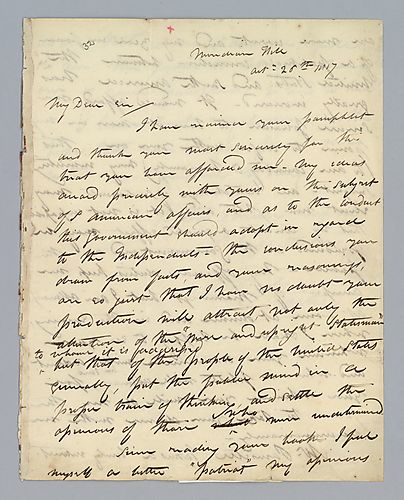 32
Meridian Hill
Oct. 28th 1817
My Dear Sir
I have received your pamphlet
and thank you most sincerely for the
treat you have afforded me. My ideas
accord precisely with yours on the subject
of S American affairs, and as to the conduct
this Government should adopt in regard
to the Independents - the conclusions you
draw from facts and your reasonings
are so just that I have no doubt your
production will attract not only the
attention of the "pure and upright Statesman"
to whom it is addressed
but that of the people of the United States
generally, put the public mind in a
proper train of thinking, and settle the
opinions of those who were undetermined
Since reading your book I feel
myself a better "patriot" my opinions